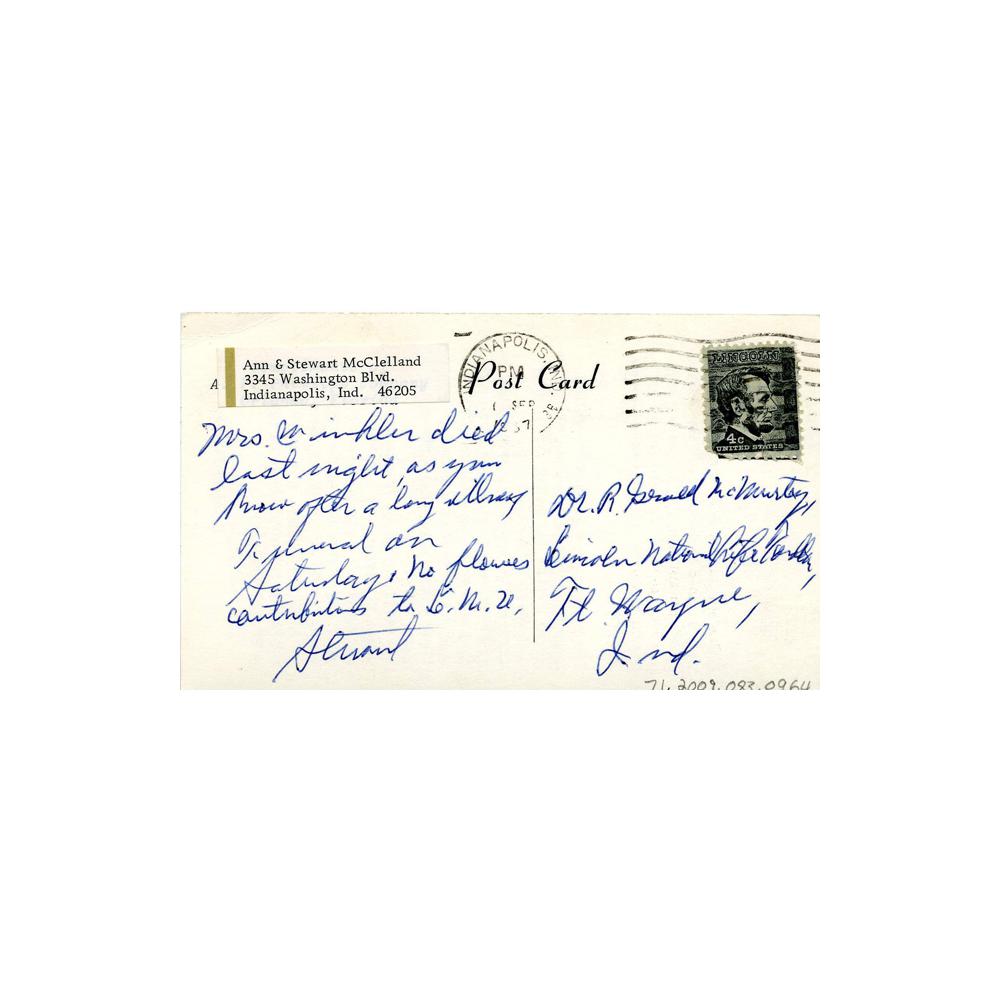 Ann & Stewart McClelland
3345 Washington Blvd.
Indianapolis, Ind. 46205
A
INDIANAPOLIS, IND.
PM
SEP
Post Card
LINCOLN
4c
UNITED STATES
Mrs. Winkler died
last night, as you
know after a long illness
Funeral on
Saturday. No flowers
contributions to L. M. U.
Stewart
Dr. R. Gerald McMurtry,
Lincoln National Life Foundation,
Ft. Wayne,
Ind.
71.2009.083.0964